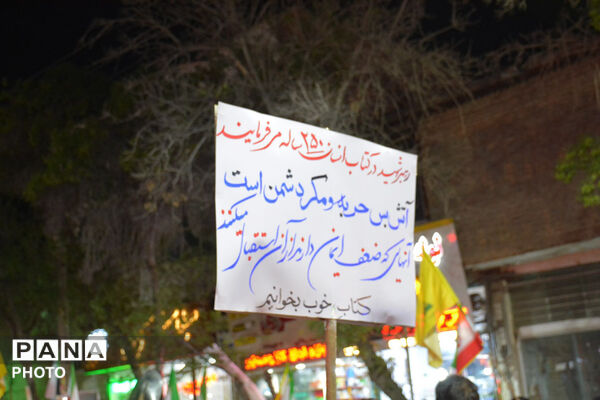 رهبر شهید در کتاب انسان ۲۵۰ ساله می فرمایند
آتش بس حربه و مکر دشمن است
آنهایی که ضعف ایمان دارند از آن استقبال میکنند
کتاب خوب بخوانیم
PANA
PHOTO